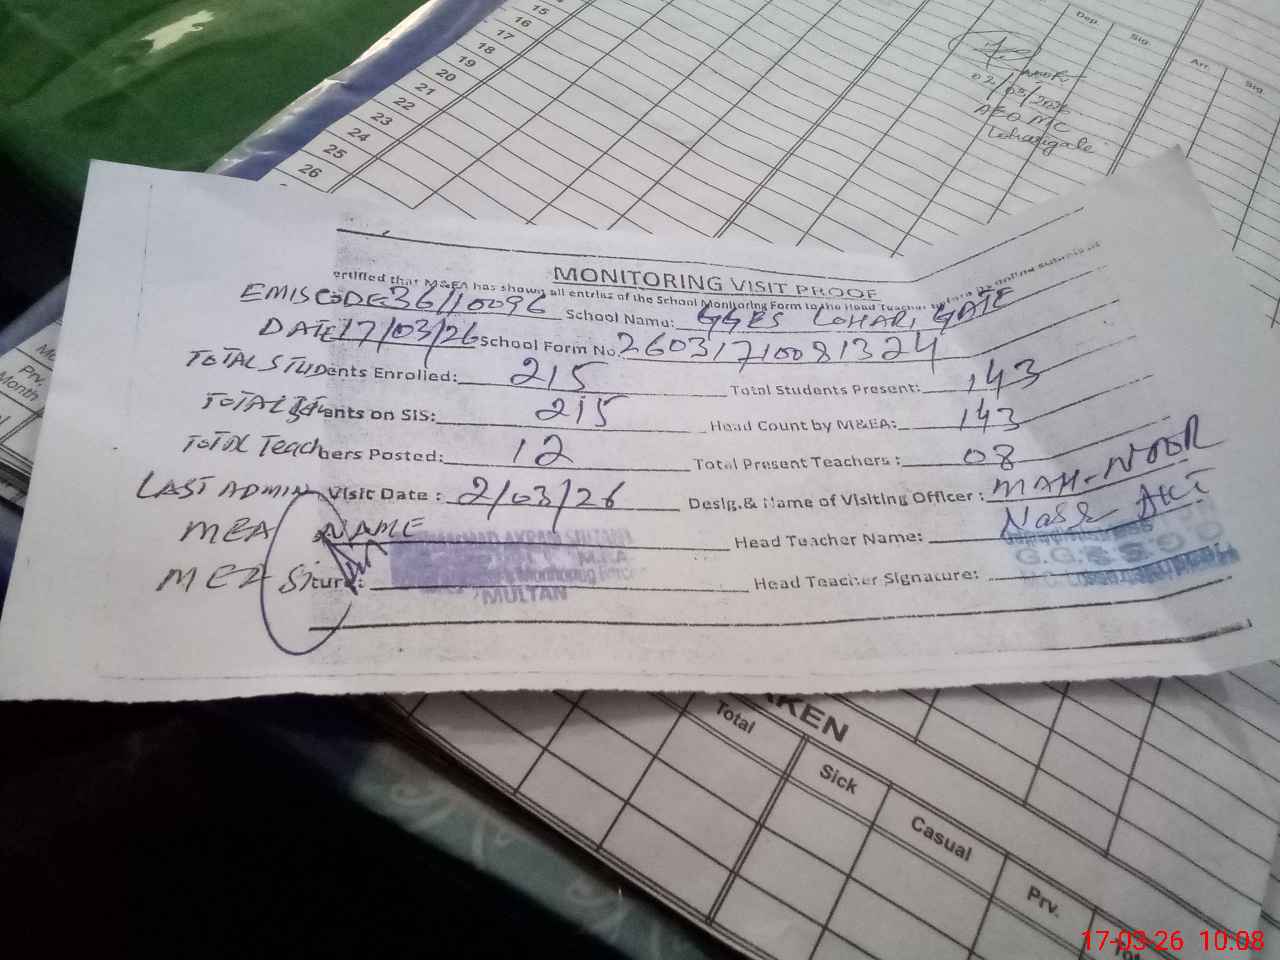 15
16
17
18
19
20
21
22
23
24
25
26
Dep.
Sig.
Arr.
Sig.
02/03/2026
AEO MC
MONITORING VISIT PROOF
ertified that M&EA has shown all entries of the School Monitoring Form to the Head Teacher before online submission
EMIS CODE 36110096 School Name: GGES LOHARI GATE
DATE 17/03/26 School Form No. 26031710081324
TOTAL STUDents Enrolled: 215 Total Students Present: 143
TOTAL Students on SIS: 215 Head Count by M&EA: 143
TOTAL Teachers Posted: 12 Total Present Teachers: 08
LAST ADMIN Visit Date: 2/03/26 Desig.& Name of Visiting Officer: MAH-NOOR
MEA NAME Head Teacher Name:
MEA Siture: Head Teacher Signature:
MULTAN
Prv.
Month
AKEN
Total
Sick
Casual
Prv.
17-03-26 10:08